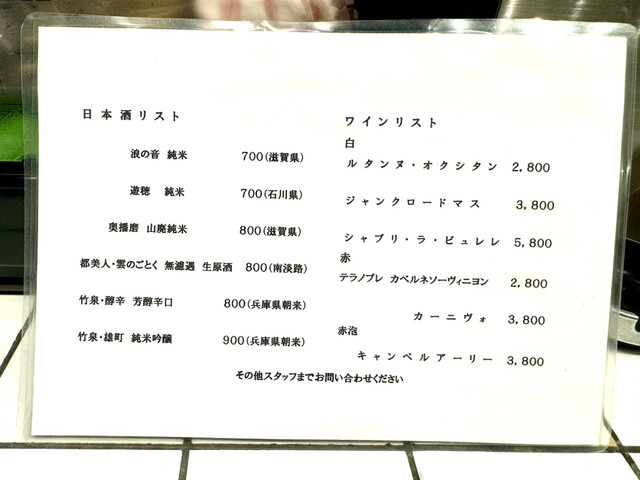 日本酒リスト
浪の音 純米 700(滋賀県)
遊穂 純米 700(石川県)
奥播磨 山廃純米 800(滋賀県)
都美人・雲のごとく 無濾過 生原酒 800(南淡路)
竹泉・醇辛 芳醇辛口 800(兵庫県朝来)
竹泉・雄町 純米吟醸 900(兵庫県朝来)
ワインリスト
白
ルタンヌ・オクシタン 2,800
ジャンクロードマス 3,800
シャブリ・ラ・ピュレレ 5,800
赤
テラノブレ カベルネソーヴィニヨン 2,800
カーニヴォ 3,800
赤泡
キャンベルアーリー 3,800
その他スタッフまでお問い合わせください